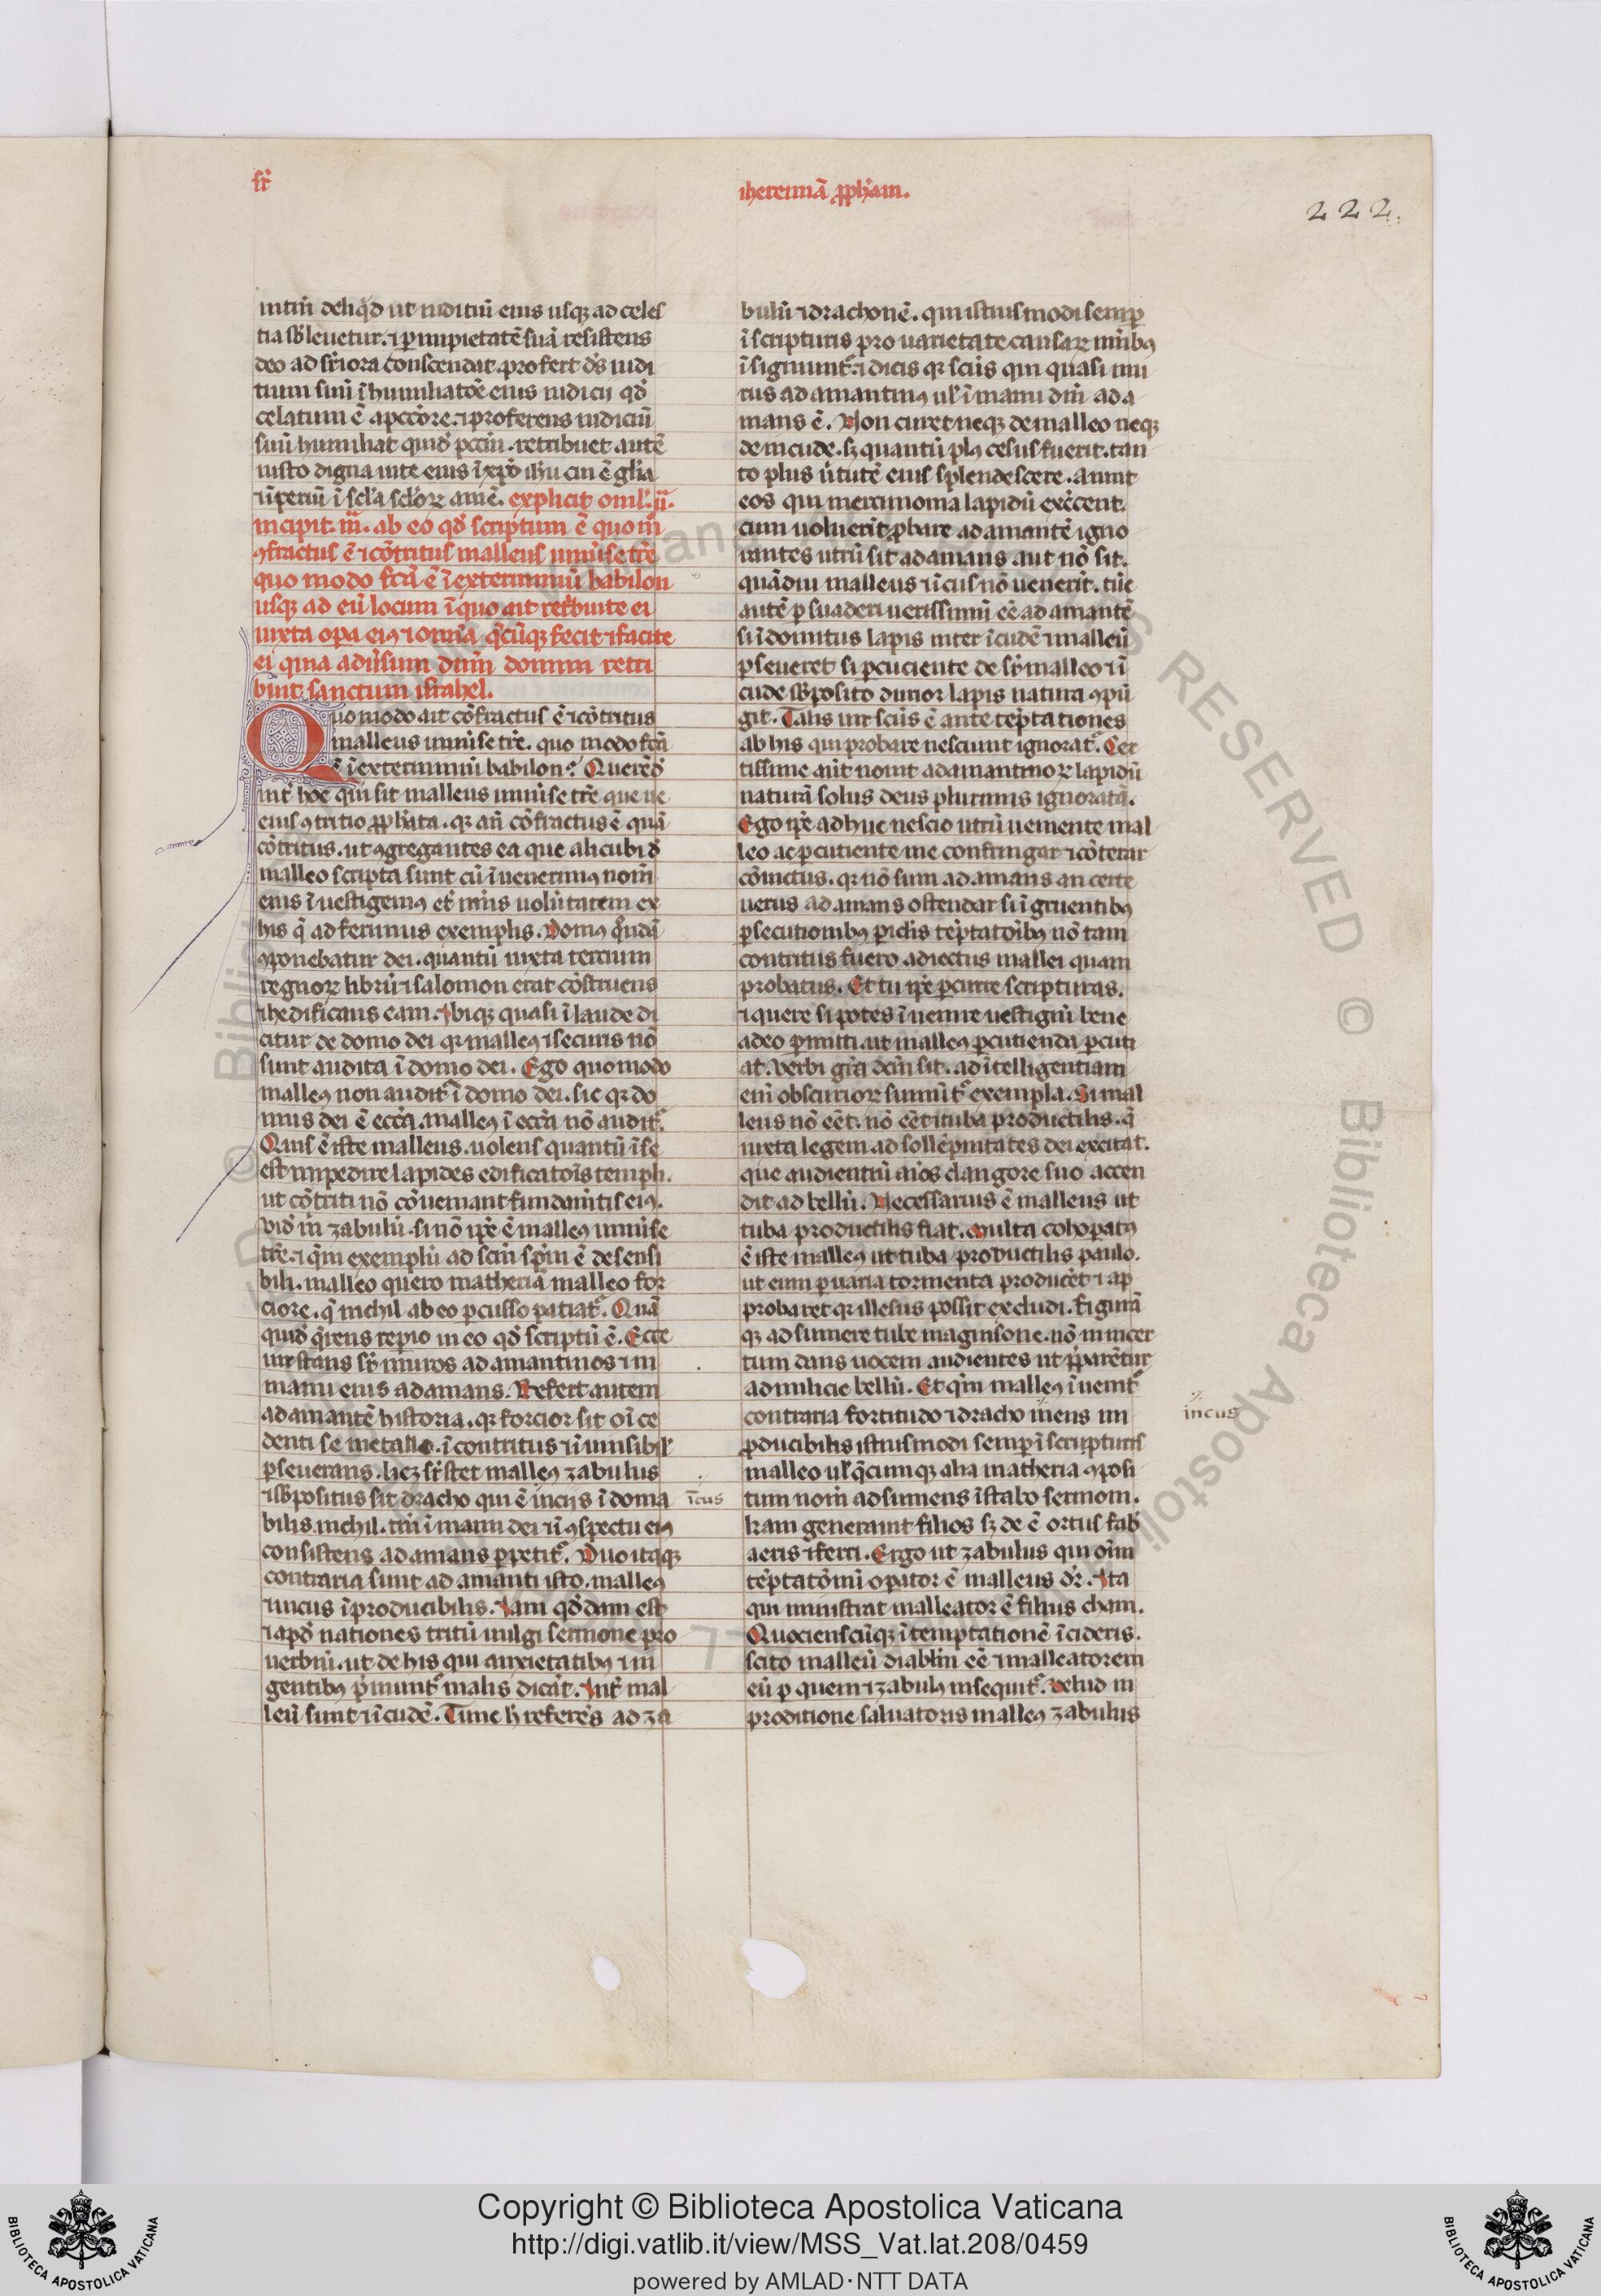 sr̄
iheremiā ꝓph̄am.
222.
ntm̄ deliq̇d ut iuditiū eius usqꝫ ad celes
tia sb̄leuetur. ⁊ ꝑ impietatē suā resistens
deo ad sr̄iora conscendat. profert ds̄ iudi
tium suū ī humiliatōe eius iudicii qd̄
celatum ē a pctōre. ⁊ proferens iudiciū
suū humiliat quid̄ pctm̄. retribuet autē
iusto digna uite eius ī xp̄o ih̄u cui ē gl̄ia
⁊ īperiū ī scl̄a scl̄oꝝ amē. explicit omil̄. ii.
incipit. iii. ab eo qd̄ scriptum ē quom̄
ꝯfractus ē ⁊ cōtritus malleus uniu̇se tr̄e
quo modo fc̄ā ē ī exterminiū babilon
usqꝫ ad eū locum ī quo ait ret̄buite ei
iuxta oꝑa eiꝰ ⁊ omīa q̄cūqꝫ fecit ⁊ facite
ei quia adūsum dn̄m domin̄ retri
buit sanctum israhel.
Quomodo ait cōfractus ē ⁊ cōtritus
malleus uniu̇se tr̄e. quo modo fc̄ā
ē ī exterminiū babilon? Querēd̄
int̄ hoc qui sit malleus uniu̇se tr̄e que ue
eius ꝯtritio ꝓph̄ata. qꝛ an̄ cōfractus ē quā
cōtritus. ut ꝯgregantes ea que alicubi d̄
malleo scripta sunt cū īuenerimꝰ nom̄
eius ī uestigemꝰ et̄ mīus uolūtatem ex
his q̄ ad ferimus exemplis. Domꝰ q̇ndā
ꝯponebatur dei. quantū iuxta tercium
regnoꝝ librū ⁊ salomon erat cōstruens
⁊ hedificans eam. Ibiqꝫ quasi ī laude di
citur de domo dei qꝛ malleꝰ ⁊ securis nō
sunt audita ī domo dei. Ego quomodo
malleꝰ non audit̄ ī domo dei. sic qꝛ do
mus dei ē eccl̄a. malleꝰ ī eccl̄a nō audit̄.
Quis ē iste malleus. uolens quantū ī se
est impedire lapides edificatōis templi.
ut cōtriti nō cōueniant fundam̄tis eiꝰ.
Vid̄ m̄ zabulū. si nō ip̄e ē malleꝰ uniu̇se
tr̄e. ⁊ q̄m exemplū ad scm̄ spm̄ ē de sensi
bili. malleo quero matheriā malleo for
ciore. q̄ nichil ab eo ꝑcusso patiat̄. Quā
quid̄ q̄rens reꝑio in eo qd̄ scriptū ē. Ecce
uir stans sr̄ muros adamantinos ⁊ in
manu eius adamans. Refert autem
adamantē historia. qꝛ forcior sit oī ce
denti se metallo. ī contritus ⁊ īuisibil̄
ꝑseuerans. licꝫ sr̄stet malleꝰ zabulus
⁊ sb̄positus sit dracho qui ē incijs ī doma
bilis. nichil. tm̄ ī manu dei ⁊ ī ꝯspectu eiꝰ
consistens adamans ꝑpetit̄. Duo itaqꝫ
contraria sunt adamanti isto. malleꝰ
⁊ incus īproducibilis. Iam qd̄dam est
⁊ apd̄ nationes tritū uulgi sermone pro
uerbiū. ut de his qui anxietatibꝰ ⁊ in
gentibꝰ p̄munt̄ malis dicāt. Int̄ mal
leū sunt ⁊ ī cudē. Tu ue h̄ referēs ad za
īcus
bulū ⁊ drachonē. qui istius modi semꝑ
ī scripturis pro uarietate causaꝝ nm̄ibꝰ
ī signiunt̄. ⁊ dicis qꝛ scūs qui quasi mu
rus adamantinꝰ ul̄ ī manu dn̄i ada
mans ē. Non curet neqꝫ de malleo neqꝫ
de incude. sꝫ quantū plꝰ cesus fuerit. tan
to plus ūtutē eius splendescere. Aiunt
eos qui mercimonia lapidū exc̄cent.
cum uoluerīt ꝓbare adamantē igno
rantes utrū sit adamans aut nō sit.
quādiu malleus ⁊ īcus nō uenerit. tūc
autē ꝑ suaderi uerissimū eē adamantē
si ī domitus lapis inter īcudē ⁊ malleū
ꝑseueret si ꝑcuciente de sr̄ malleo ⁊ ī
cude sb̄posito durior lapis natura ꝯpū
git. Talis uir scūs ē ante tēptationes
ab his qui probare nesciunt ignorat̄. Cer
tissime aūt nouit adamantinoꝝ lapidū
naturā solus deus plurimis ignoratā.
Ego ip̄e adhuc nescio utrū ueniente mal
leo ac ꝑcutiente me confringar ⁊ cōterar
cōuictus. qꝛ nō sum adamans an certe
uerus adamans ostendar si ī gruentibꝰ
ꝑsecutionibꝰ ꝑiclis tēptatōibꝰ nō tam
contritus fuero adiectus mallei quam
probatus. Et tu ip̄e ꝑcurre scripturas.
⁊ quere si potes īuenire uestigiū bene
adeo ꝑmitti. ut malleꝰ ꝑcutienda ꝑcuti
at. Verbi gr̄a dcm̄ sit. ad ītelligentiam
eni obscurioꝝ sumūt̄ exempla. Si mal
leus nō eēt. nō eēt ⁊ tuba productilis. q̄
iuxta legem ad sollēpnitates dei excitat.
que audientiū aīos clangore suo accen
dit ad bellū. Necessarius ē malleus ut
tuba productilis fiat. Multa cohoꝑatꝰ
ē iste malleꝰ ut tuba productilis paulo.
ut eum ꝑ uaria tormenta producēt ⁊ ap
probaret qꝛ illesus possit excludi. figurā
qꝫ adsumere tube magnisone. nō in incer
tum dans uocem audientes ut p̄parētur
ad milicie bellū. Et q̄m malleꝰ īuenit̄
contraria fortitudo ⁊ dracho iūens im
ꝓducibilis istiusmodi semꝑ ī scripturis
malleo ul̄ q̄cumqꝫ alia matheria ꝯposi
tum nom̄ adsumens īstabo sermoni.
kam generauit filios sꝫ de ē ortus fab̄
aeris ⁊ ferri. Ergo ut zabulus qui oīm
tēptatōnū oꝑator ē malleus dr̄. Ita
qui ministrat malleator ē filius cham.
Quociens cūqꝫ ī temptationē īcideris.
scito malleū diablm̄ eē ⁊ malleatorem
eū ꝑ quem ⁊ zabulꝰ insequit̄. Velud in
proditione saluatoris malleꝰ zabulus
incus
© Biblioteca Apostolica Vaticana ALL RIGHTS RESERVED © Biblioteca Apostolica
Copyright © Biblioteca Apostolica Vaticana
http://digi.vatlib.it/view/MSS_Vat.lat.208/0459
powered by AMLAD·NTT DATA
BIBLIOTECA APOSTOLICA VATICANA
BIBLIOTECA APOSTOLICA VATICANA